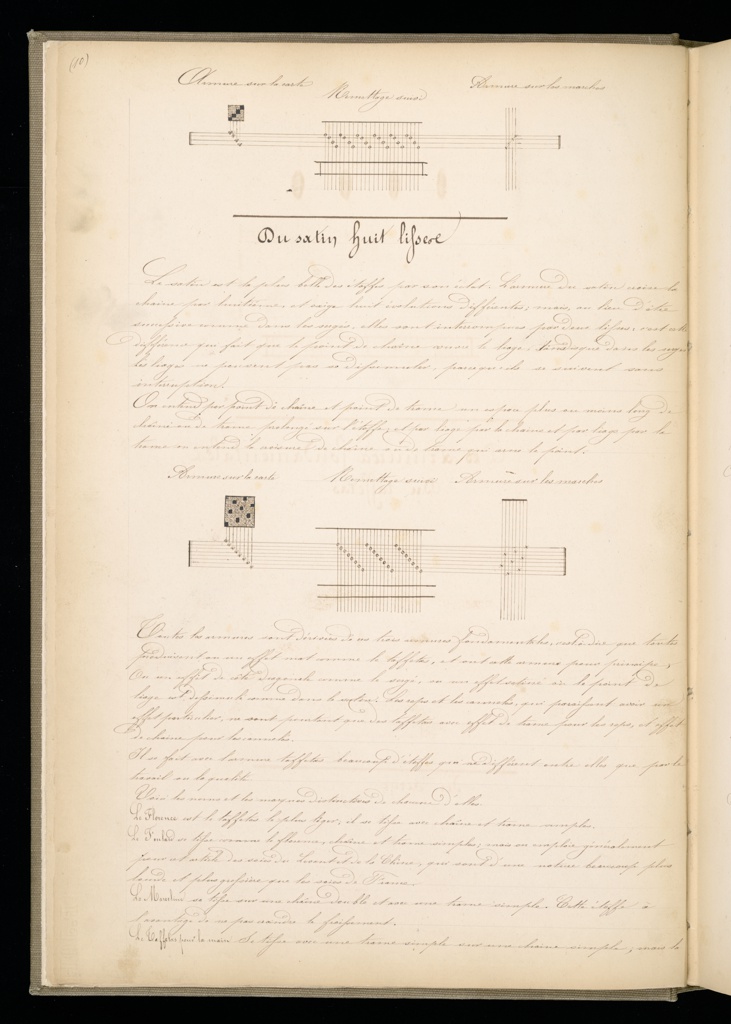 (10)
Armure sur la carte Remettage suivi Armure sur les marches
Du satin huit lisses
Le satin est la plus belle des étoffes par son éclat. L'armure du satin la
chaîne par huitième, et exige huit évolutions différentes; mais, au lieu d'être
successive comme dans les sergés, elles sont interrompues par deux lisses, c'est cette
différence qui fait que le point de chaîne couvre le liage, tandis que dans les sergés
les liages ne peuvent pas se dissimuler, puisqu'ils se suivent sans
interruption.
On entend par point de chaîne et point de trame un espace plus ou moins long de
chaîne ou de trame prolongé sur l'étoffe; et par liage par la chaîne et par liage par la
trame on entend la de chaîne ou de trame qui serre le point.
Armure sur la carte Remettage suivi Armure sur les marches
Toutes les armures sont dérivées de ces trois armures fondamentales, c'est à dire que toutes
produisent ou un effet mat comme le taffetas, et ont cette armure pour principe;
Ou un effet de côté diagonale comme le sergé, ou un effet satiné où le point de
liage est dissimulé comme dans le satin. Les reps et les cannelés, qui paraissent avoir un
effet particulier, ne sont pourtant que des taffetas avec effet de trame pour les reps, et effet
de chaîne pour les cannelés.
Il se fait avec l'armure taffetas beaucoup d'étoffes qui ne diffèrent entre elles que par le
travail ou la qualité.
Voici les noms et les marques distinctives de chacune d'elles.
Le Florence est le taffetas le plus léger, il se tisse avec chaîne et trame simples.
Le se tisse comme le florence, chaîne et trame simples; mais on emploie généralement
pour cet article des soies du Levant et de la Chine, qui sont d'une nature beaucoup plus
lourde et plus grossière que les soies de France.
Le se tisse sur une chaîne double et avec une trame simple. Cette étoffe a
l'avantage de ne pas craindre le froissement.
Le Taffetas pour la se tisse avec une trame simple sur une chaîne simple, mais la